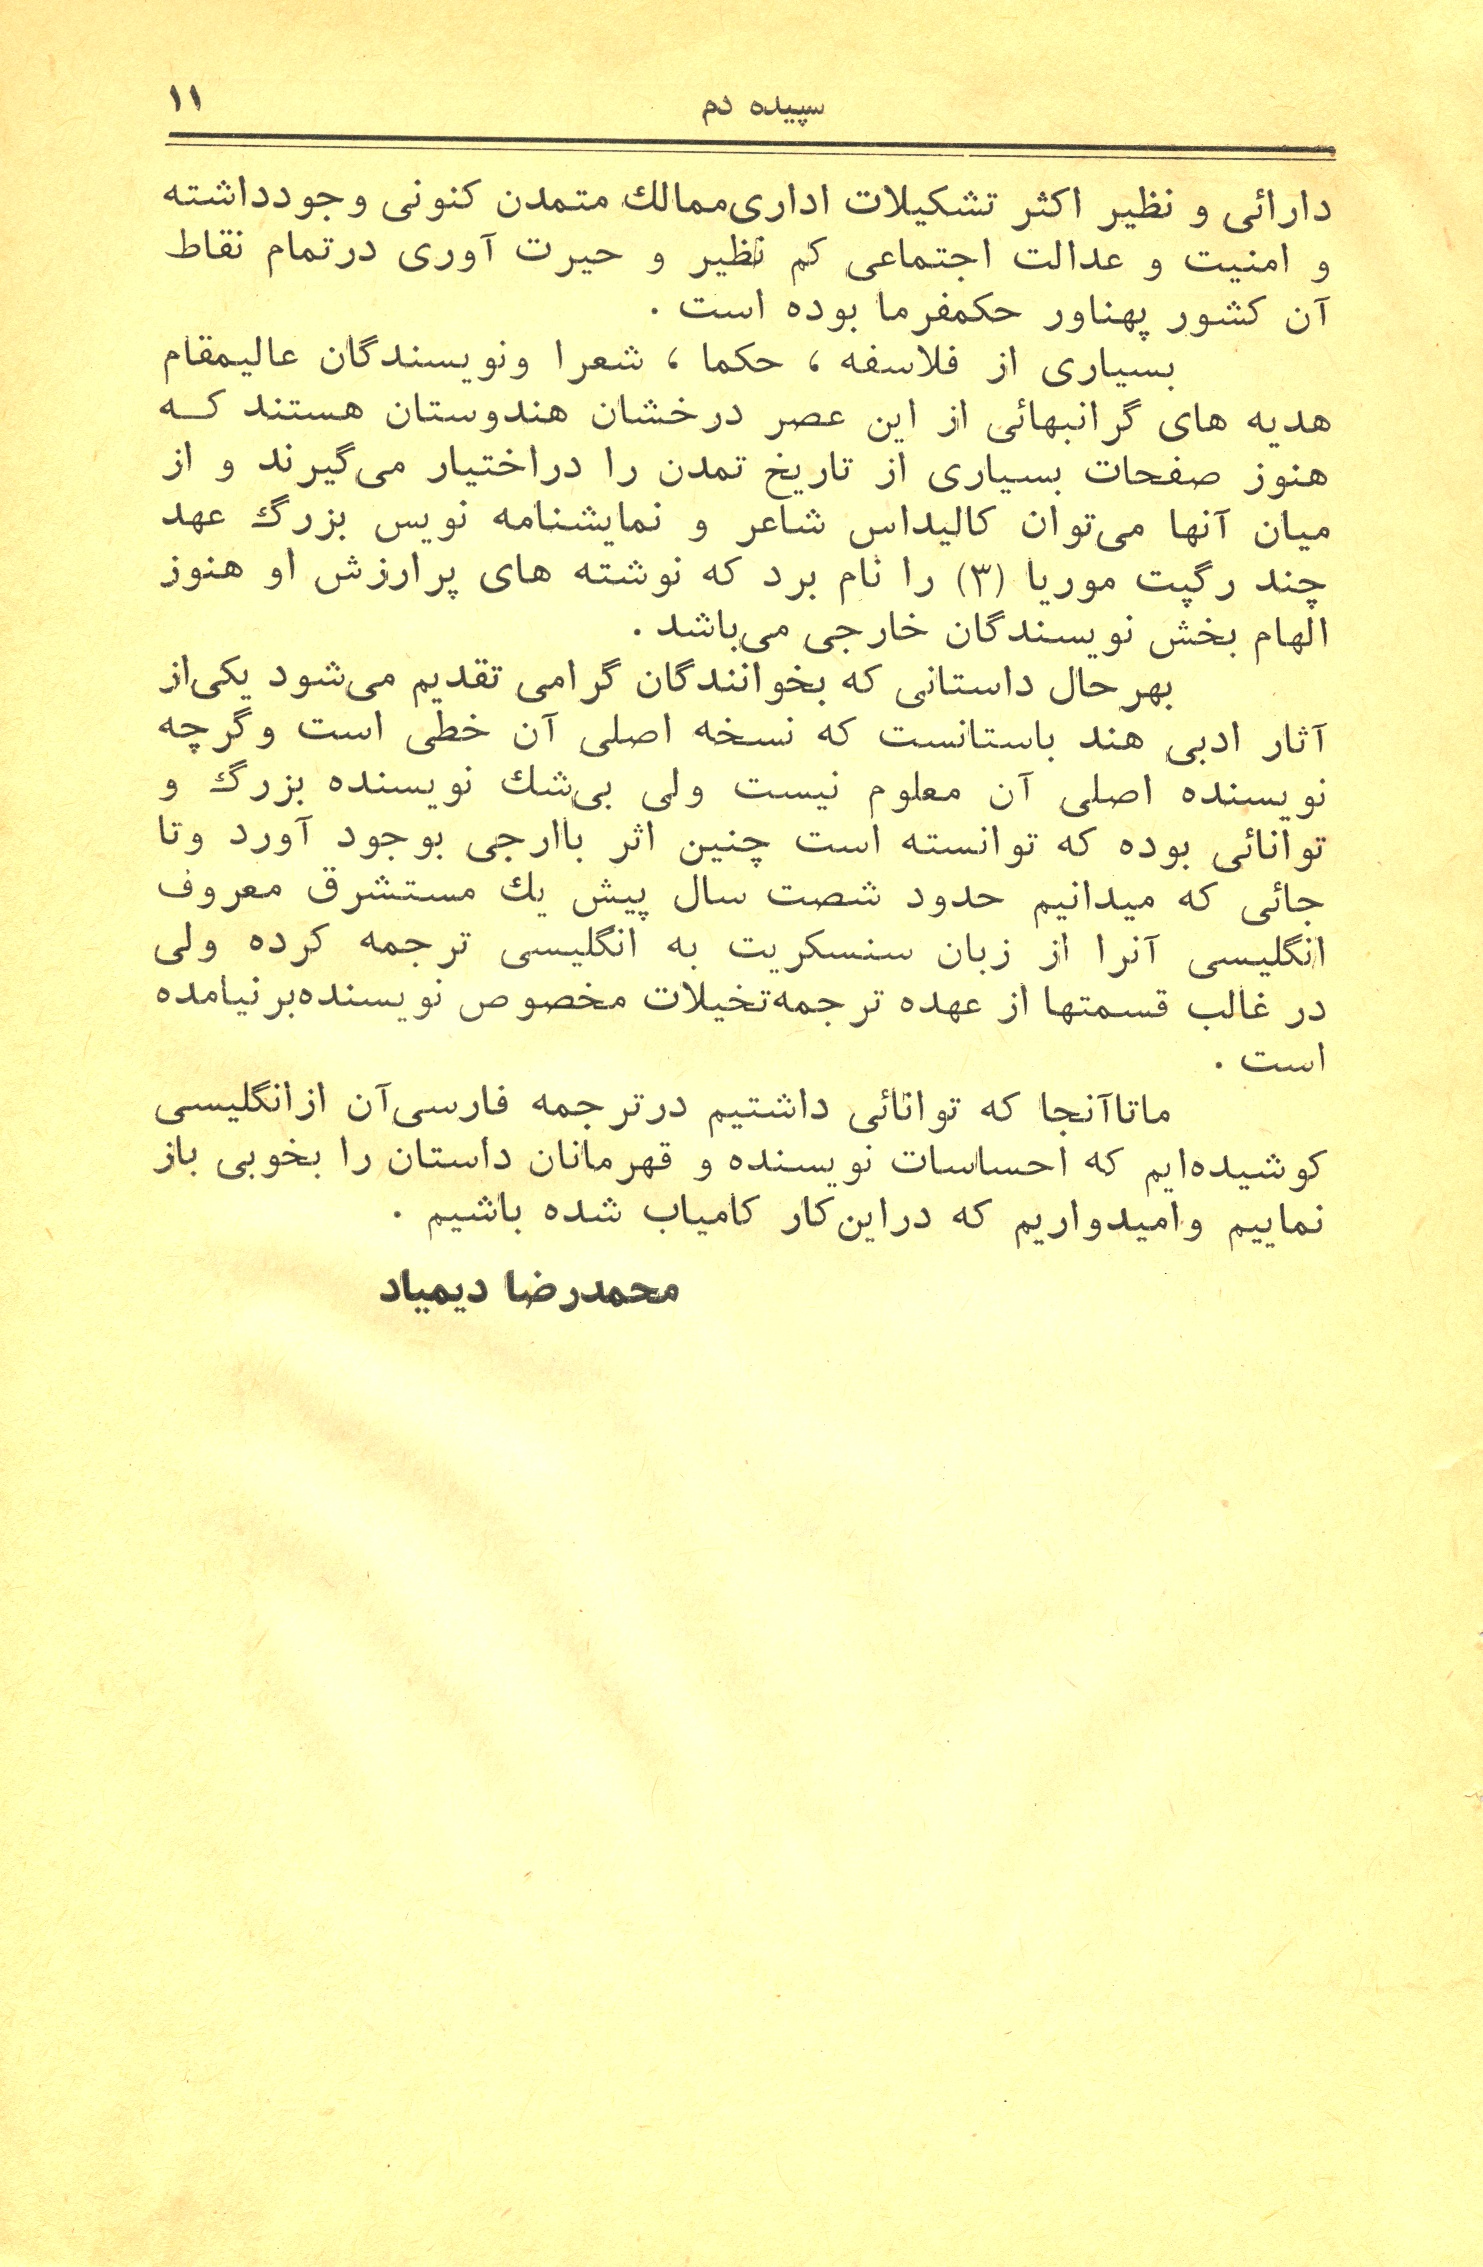 سپیده دم ۱۱
دارائی و نظیر اکثر تشکیلات اداری‌ممالك متمدن کنونی وجودداشته
و امنیت و عدالت اجتماعی کم نظیر و حیرت آوری درتمام نقاط
آن کشور پهناور حکمفرما بوده است .
بسیاری از فلاسفه ، حکما ، شعرا ونویسندگان عالیمقام
هدیه های گرانبهائی از این عصر درخشان هندوستان هستند کـه
هنوز صفحات بسیاری از تاریخ تمدن را دراختیار می‌گیرند و از
میان آنها می‌توان کالیداس شاعر و نمایشنامه نویس بزرگ عهد
چند رگپت موریا (۳) را نام برد که نوشته های پرارزش او هنوز
الهام بخش نویسندگان خارجی می‌باشد .
بهرحال داستانی که بخوانندگان گرامی تقدیم می‌شود یکی‌از
آثار ادبی هند باستانست که نسخه اصلی آن خطی است وگرچه
نویسنده اصلی آن معلوم نیست ولی بی‌شك نویسنده بزرگ و
توانائی بوده که توانسته است چنین اثر باارجی بوجود آورد وتا
جائی که میدانیم حدود شصت سال پیش یك مستشرق معروف
انگلیسی آنرا از زبان سنسکریت به انگلیسی ترجمه کرده ولی
در غالب قسمتها از عهده ترجمه‌تخیلات مخصوص نویسنده‌برنیامده
است .
ماتاآنجا که توانائی داشتیم درترجمه فارسی‌آن ازانگلیسی
کوشیده‌ایم که احساسات نویسنده و قهرمانان داستان را بخوبی باز
نماییم وامیدواریم که دراین‌کار کامیاب شده باشیم .
محمدرضا دیمیاد